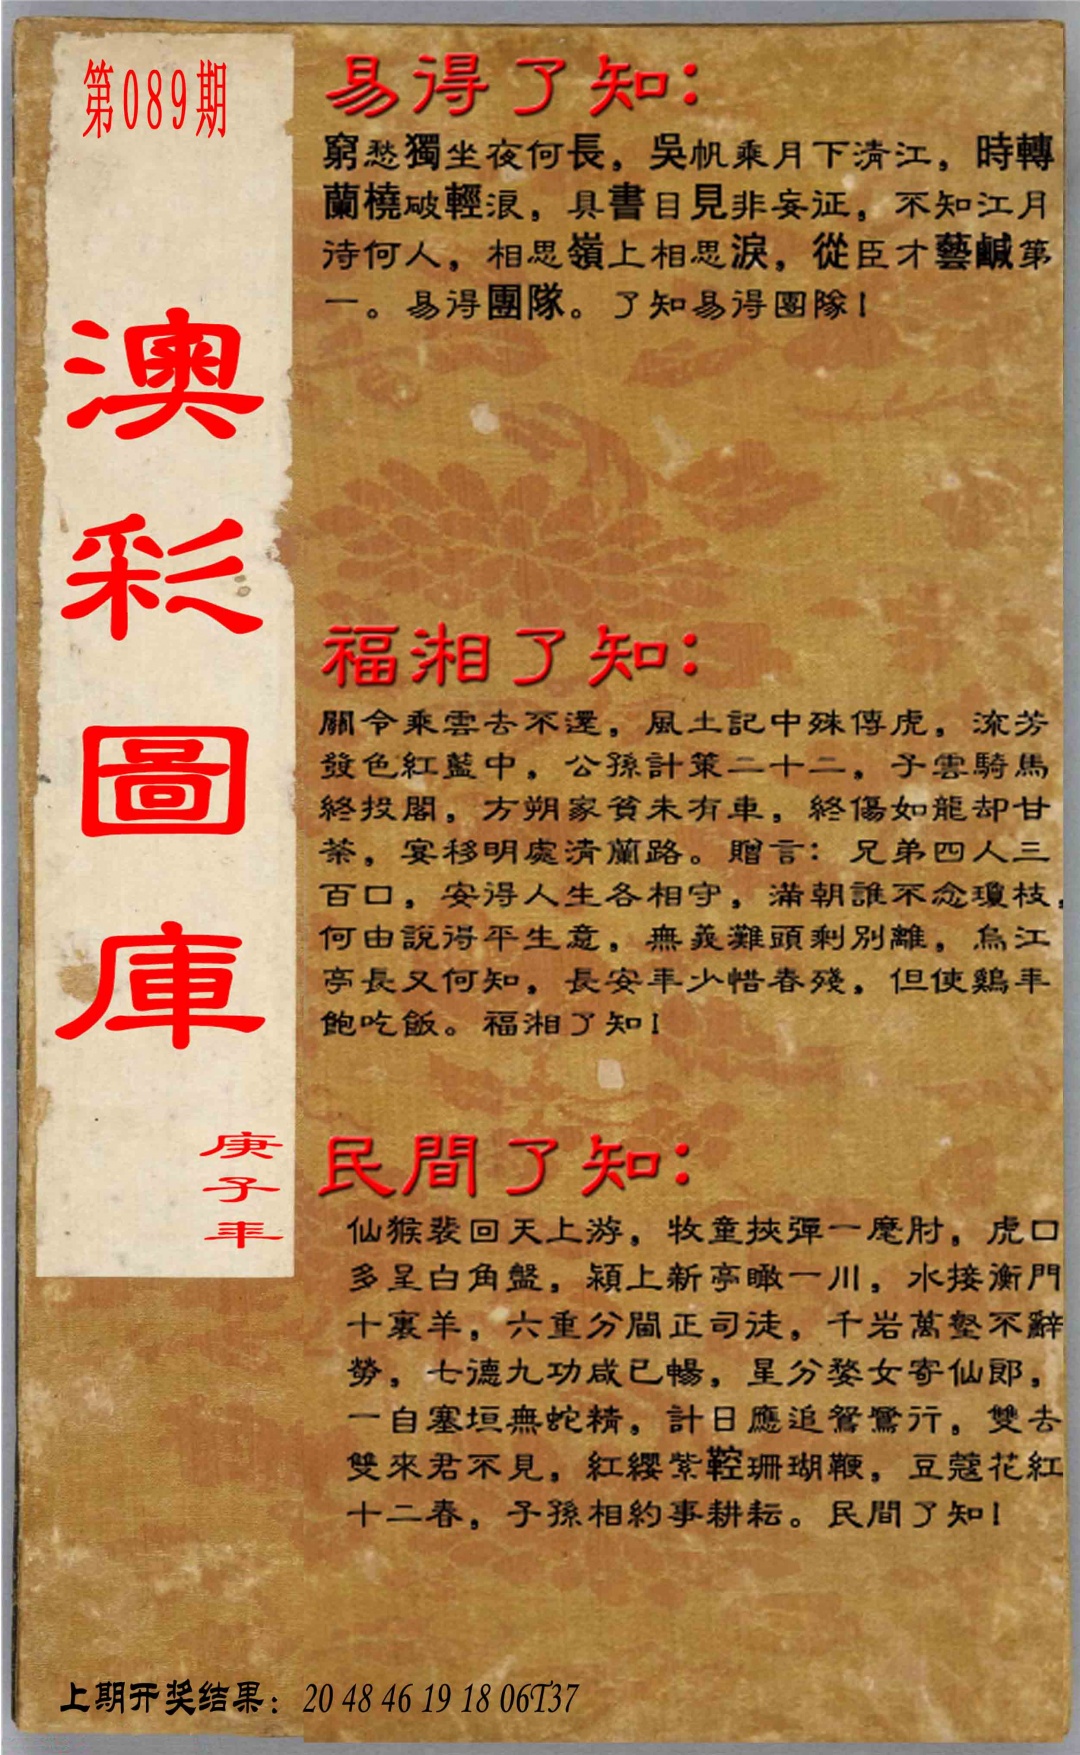 第089期
澳彩圖庫
庚子年
易得了知：
窮愁獨坐夜何長，吳帆乘月下清江，時轉
蘭橈破輕浪，具書目見非妄証，不知江月
待何人，相思嶺上相思淚，從臣才藝鹹第
一。易得團隊。了知易得團隊！
福湘了知：
關令乘雲去不還，風土記中殊傳虎，流芳
發色紅藍中，公孫計策二十二，子雲騎馬
終投閣，方朔家貧未有車，終傷如龍却甘
荼，宴移明處清蘭路。贈言：兄弟四人三
百口，安得人生各相守，滿朝誰不念瓊枝，
何由說得平生意，無義灘頭剩別離，烏江
亭長又何知，長安年少惜春殘，但使鷄年
飽吃飯。福湘了知！
民間了知：
仙猴裴回天上游，牧童挾彈一麾肘，虎口
多呈白角盤，潁上新亭瞰一川，水接衡門
十裏羊，六重分閫正司徒，千岩萬壑不辭
勞，七德九功咸已暢，星分婺女寄仙郎，
一自塞垣無蛇精，計日應追鴛鷺行，雙去
雙來君不見，紅纓紫鞚珊瑚鞭，豆蔻花紅
十二春，子孫相約事耕耘。民間了知！
上期开奖结果：20 48 46 19 18 06T37